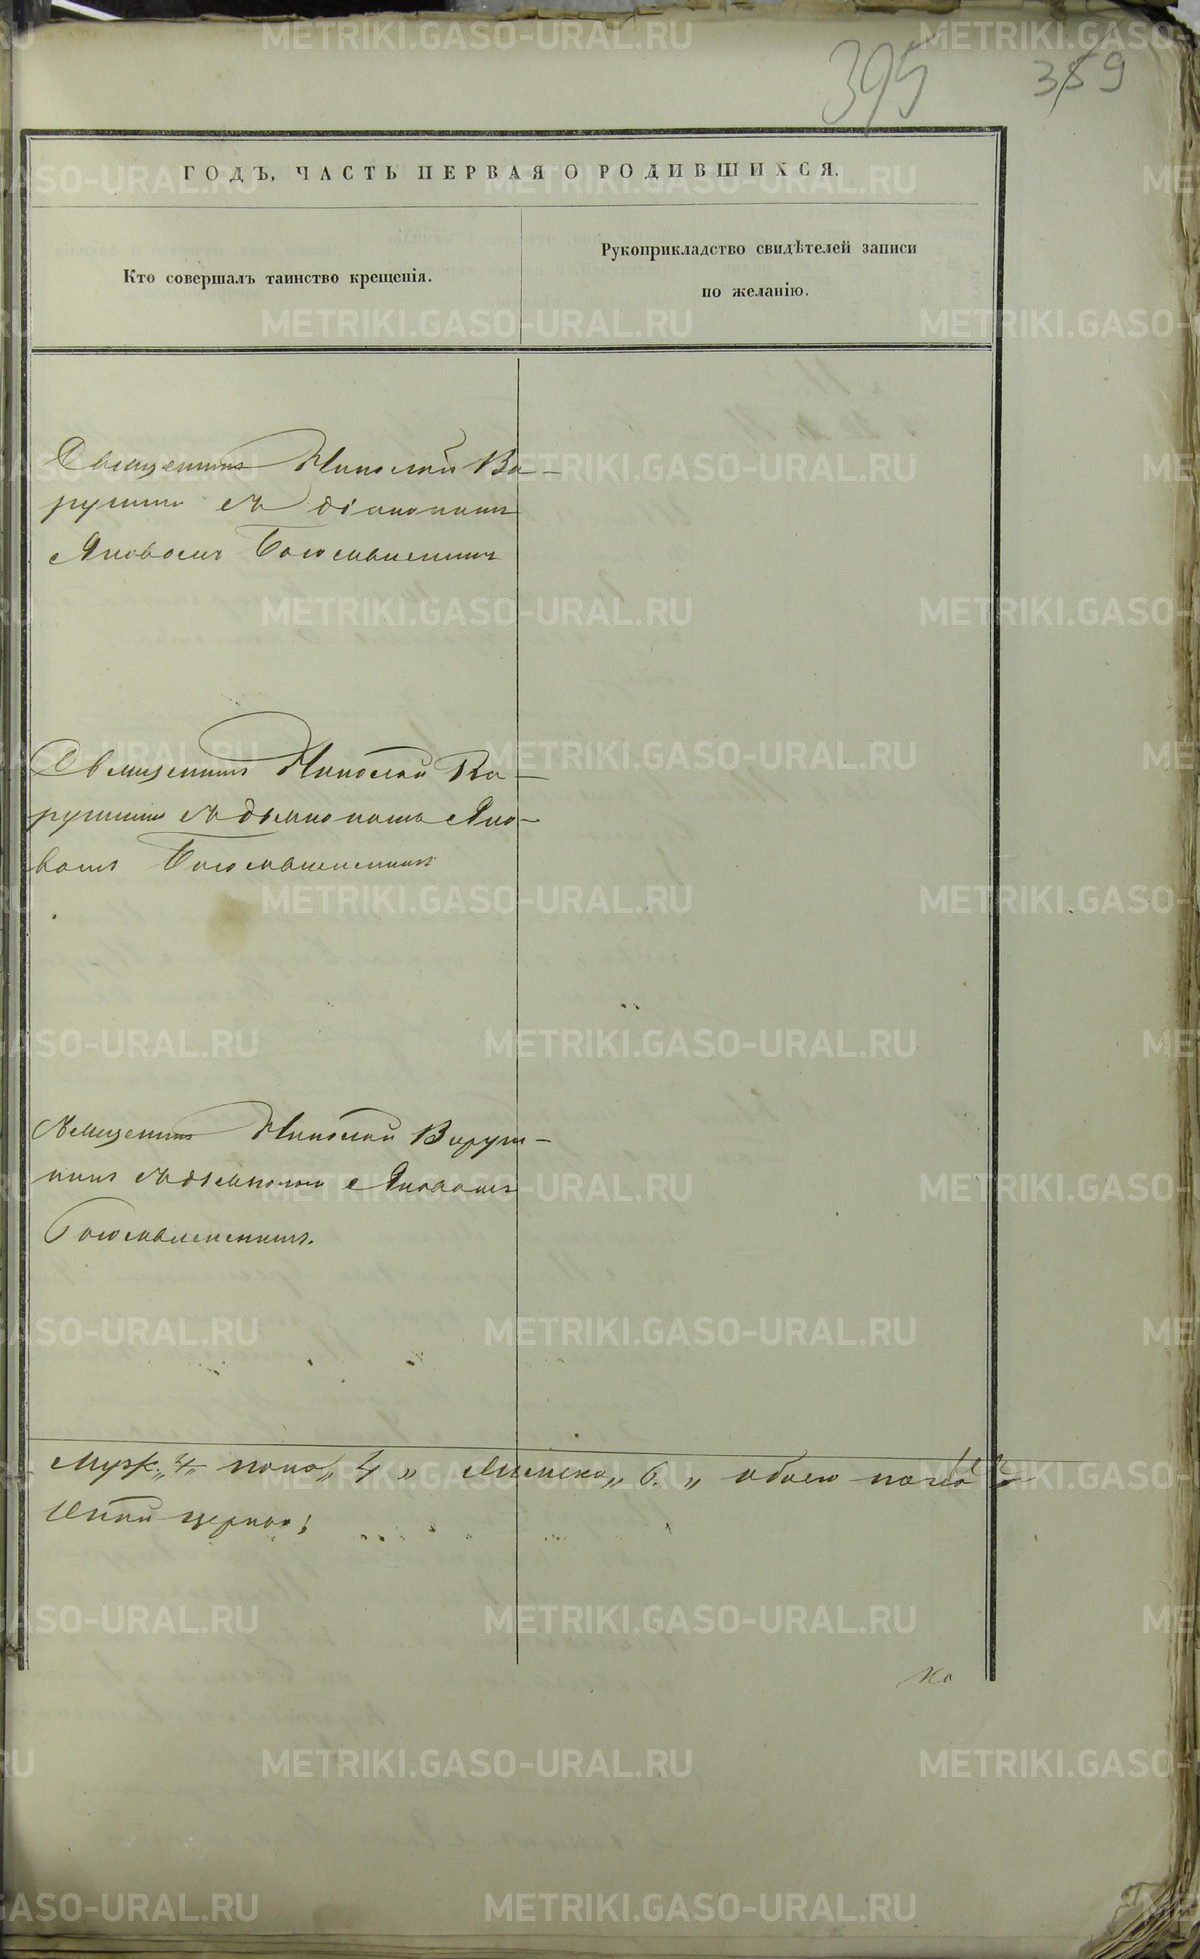 395
359
ГОДЪ, ЧАСТЬ ПЕРВАЯ О РОДИВШИХСЯ.
Кто совершалъ таинство крещенія.
Рукоприкладство свидѣтелей записи
по желанію.
Священникъ Николай Ва-
рушинъ съ діакономъ
Яковомъ Богоявленскимъ
Священникъ Николай Ва-
рушинъ съ дьякономъ Яко-
вомъ Богоявленскимъ
Священникъ Николай Варуш-
Яковомъ
Богоявленскимъ.
Муж. пола „ 4 „ Женска „ 6. „ обоего пола
METRIKI.GASO-URAL.RU